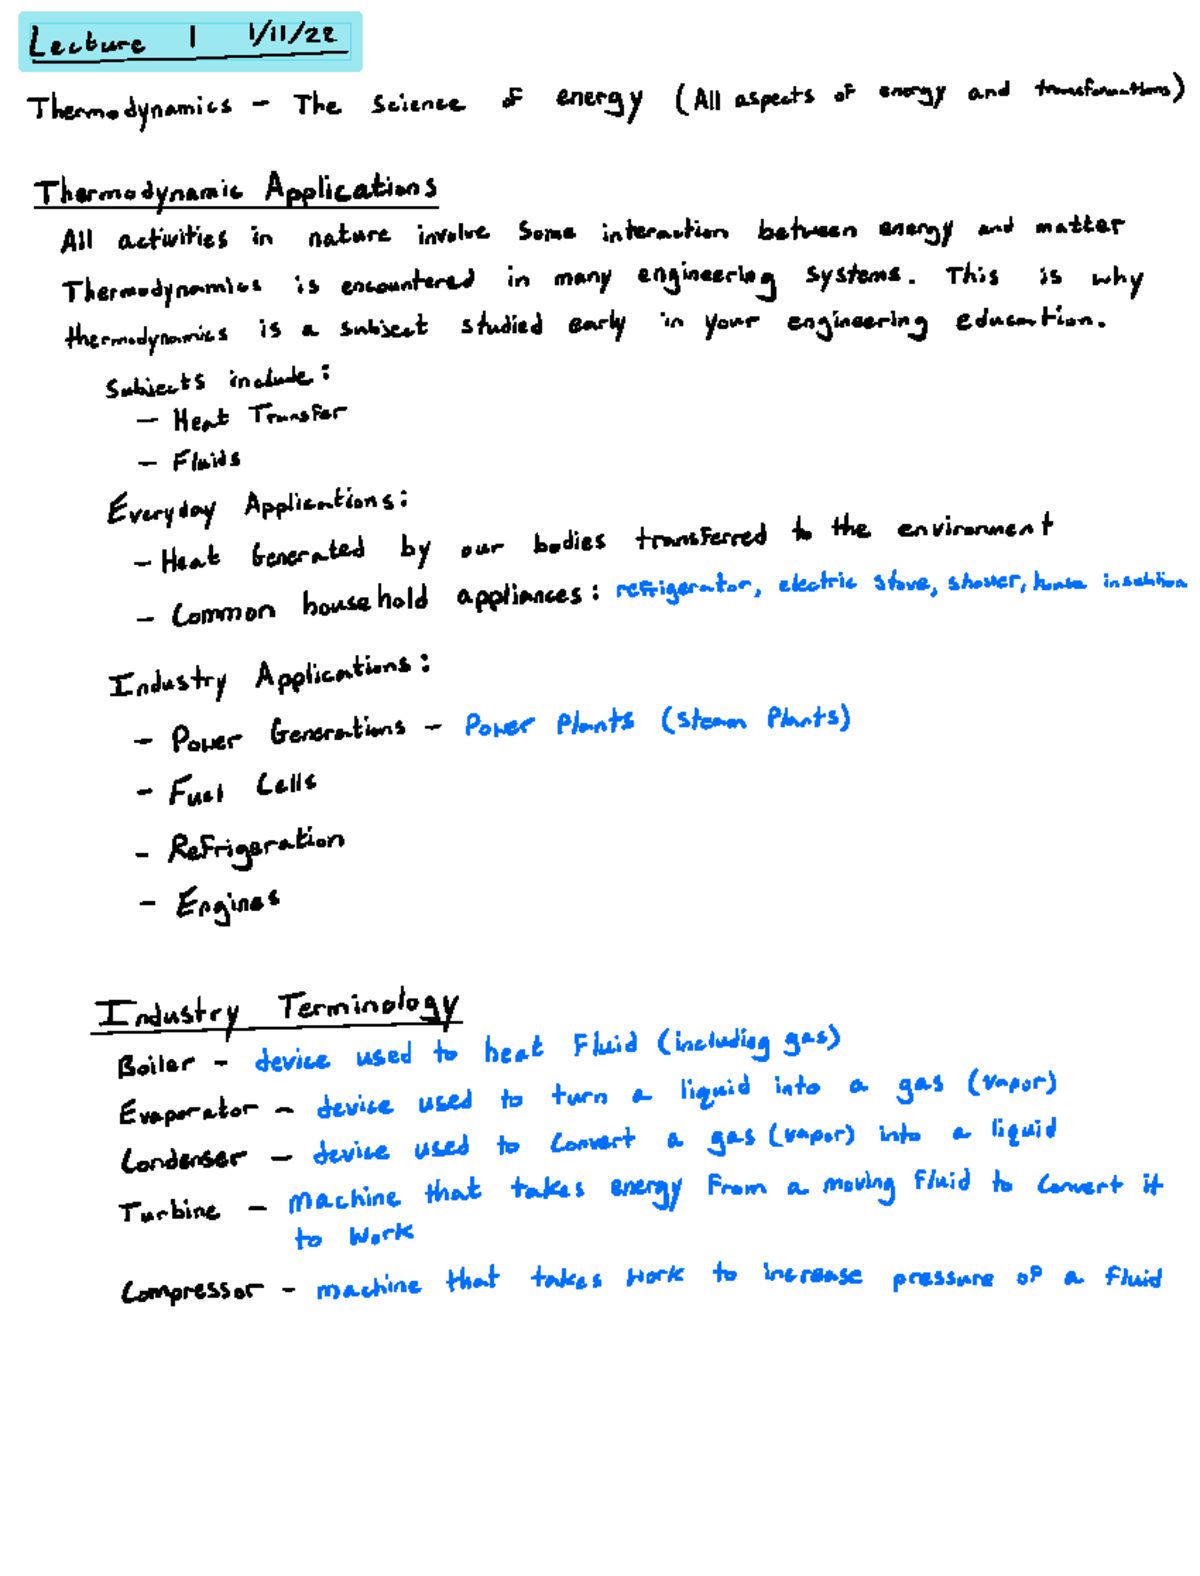 Lecture 1 1/11/22
Thermodynamics - The Science of energy (All aspects of energy and transformations)
Thermodynamic Applications
All activities in nature involve some interaction between energy and matter
Thermodynamics is encountered in many engineering systems. This is why
thermodynamics is a subject studied early in your engineering education.
Subjects include:
- Heat Transfer
- Fluids
Everyday Applications:
- Heat Generated by our bodies transferred to the environment
- Common household appliances: refrigerator, electric stove, shower, house insulation
Industry Applications:
- Power Generations - Power Plants (Steam Plants)
- Fuel Cells
- Refrigeration
- Engines
Industry Terminology
Boiler - device used to heat Fluid (including gas)
Evaporator - device used to turn a liquid into a gas (vapor)
Condenser - device used to convert a gas (vapor) into a liquid
Turbine - machine that takes energy from a moving fluid to convert it
to work
Compressor - machine that takes work to increase pressure of a fluid